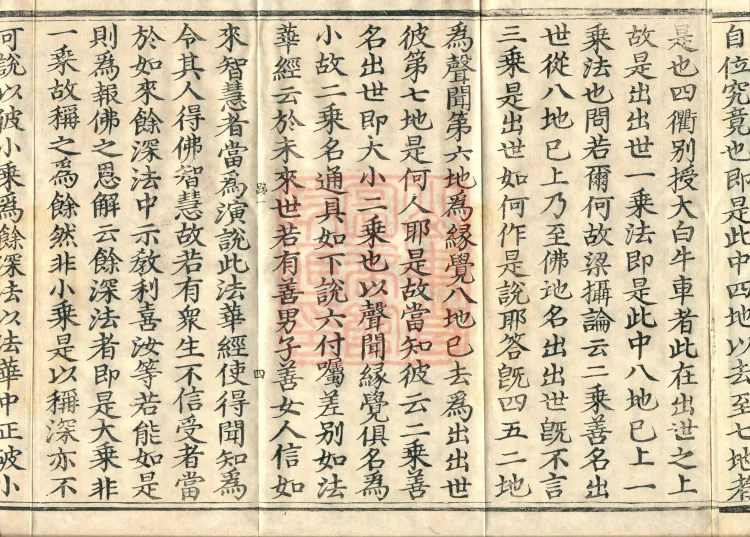 自位究竟也即是此中四地以去至七地者
是也四衢別授大白牛車者此在出世之上
故是出出世一乘法即是此中八地已上一
乘法也問若爾何故梁攝論云二乘善名出
世從八地已上乃至佛地名出出世旣不言
三乘是出世如何作是說耶答旣四五二地
為聲聞第六地為緣覺八地已去為出出世
彼第七地是何人耶是故當知彼云二乘善
名出世即大小二乘也以聲聞緣覺俱名為
小故二乘名通具如下說六付囑差別如法
華經云於未來世若有善男子善女人信如
來智慧者當為演說此法華經使得聞知為
令其人得佛智慧故若有衆生不信受者當
於如來餘深法中示教利喜汝等若能如是
則為報佛之恩解云餘深法者即是大乘非
一乘故稱之為餘然非小乘是以稱深亦不
可說以彼小乘為餘深法以法華中正破小
四